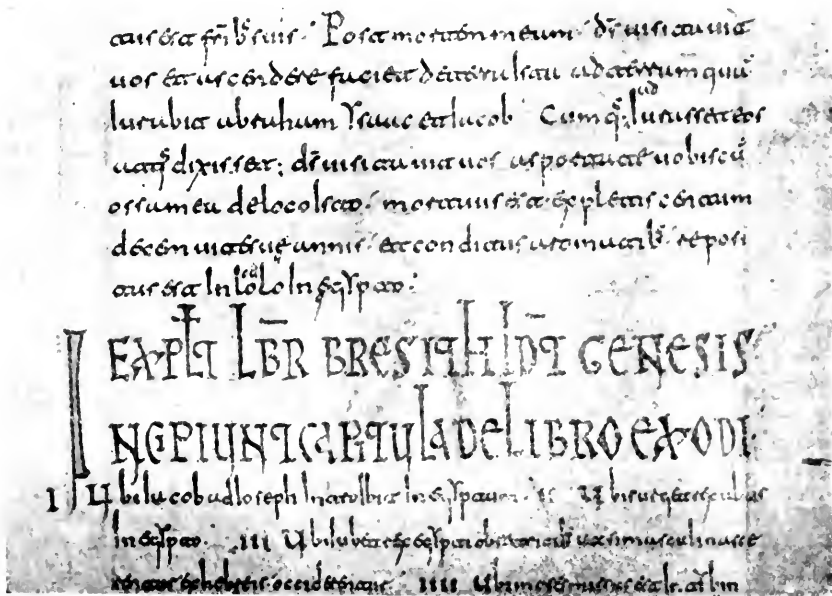 tus est frībs suis. Post mortem meum d̄s uisitauit
uos et ascendere faciet de terra ista ad terram quā
iurabit abraham ysaac et iacob Cumq; adiurasset eos
atq; dixisset; d̄s uisitauit uos asportate uobiscū
ossa mea de loco isto. mortuus est expletis centum
decem uite suę annis. et conditus aromatib; reposi
tus est in loculo in egypto.
EXPLT LBR BRESITH IDT GENESIS
INCIPIUNT CAPITULA DE LIBRO EXODI
I Ubi iacob ad ioseph intrabit in egyptum. II Ubi
in egypto. III Ubi iubet rex egypti obstetricib; ut si masculi nasce
rentur ex hebreis occiderentur. IIII Ubi moses missus est